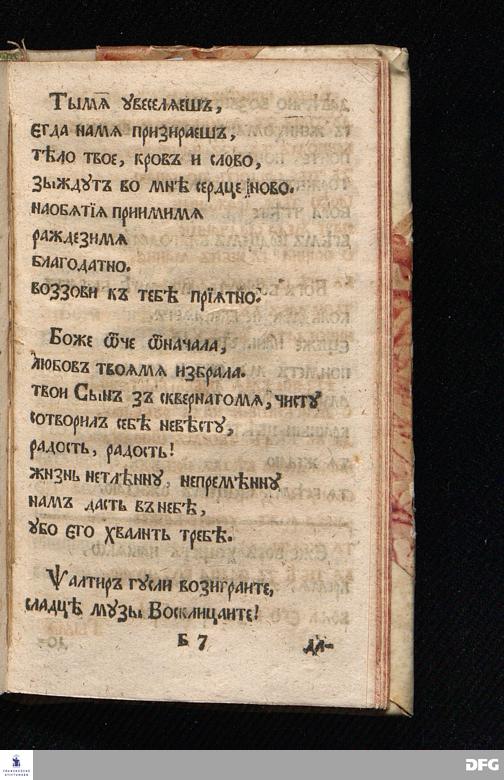 Тымѧ увеселѧешъ,
єгда намѧ призираешъ,
тѣло твое, кровъ и слово,
зыждутъ во мнѣ сердце ново.
наобѧтїѧ приимимѧ
раждезимѧ
благодатно.
воззови къ тебѣ прїѧтно.
Боже ѿче ѿначала,
любовъ твоѧмѧ избрала.
твои Сынъ зъ сквернагомѧ, чисту
сотворилъ себѣ невѣсту,
радость, радость!
жизнь нетлѣнну, непремѣнну
намъ дасть внебѣ,
убо єго хвалить требѣ.
Ѱалтиръ гусли возиграите,
сладцѣ музы Восклицаите!
Б 7
дл-
FRANCKESCHE STIFTUNGEN
DFG